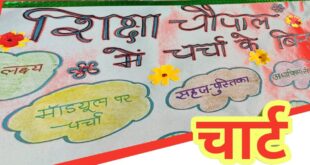 शिक्षा चौपाल
में चर्चा के
लक्ष्य
मॉड्यूल पर
चर्चा
सहज-पुस्तिका
चार्ट